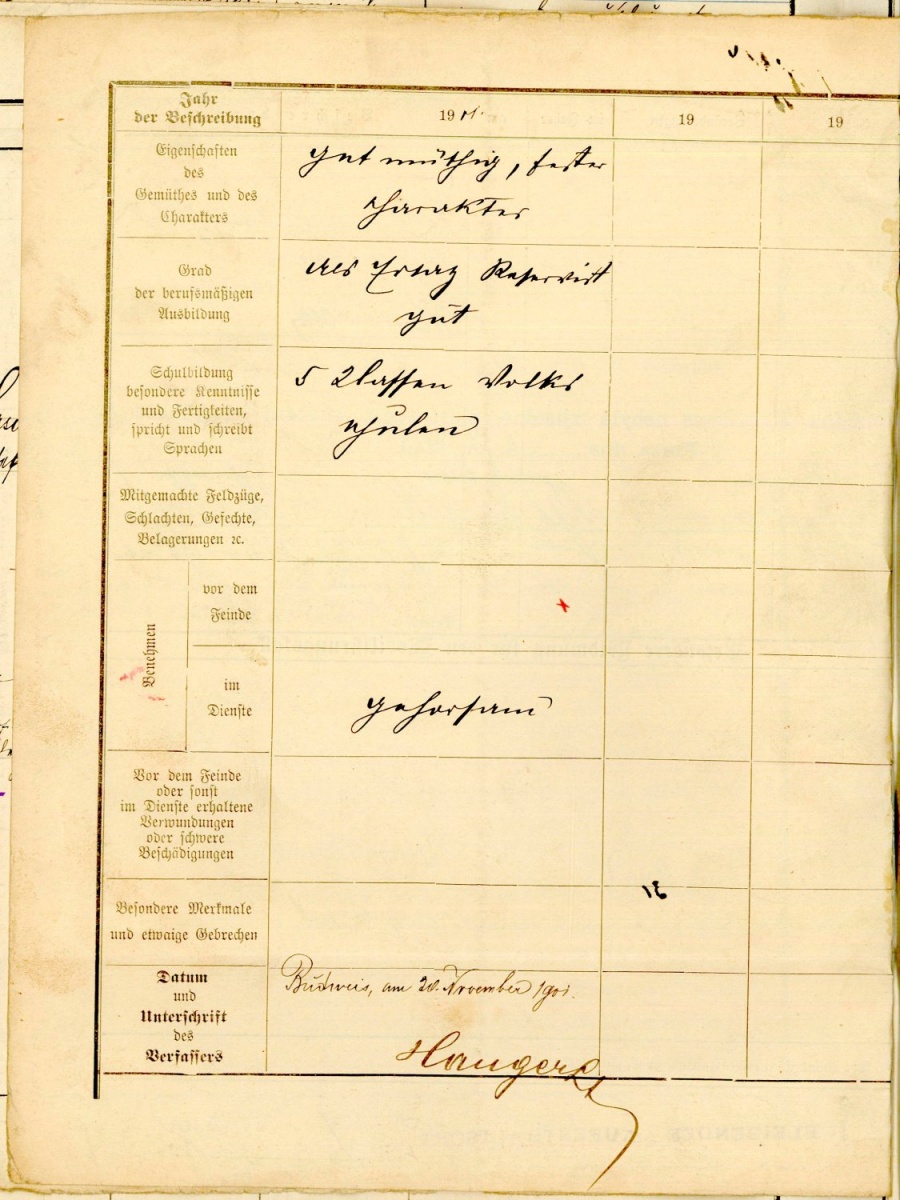 Jahr
der Beschreibung
1901.
19
19
Eigenschaften
des
Gemüthes und des
Charakters
gut müthig, fester
Charakter
Grad
der berufsmäßigen
Ausbildung
Als Ersatz Reservist
gut
Schulbildung
besondere Kenntnisse
und Fertigkeiten,
spricht und schreibt
Sprachen
5 Classen Volks
schulen
Mitgemachte Feldzüge,
Schlachten, Gefechte,
Belagerungen ꝛc.
Benehmen
vor dem
Feinde
im
Dienste
gehorsam
Vor dem Feinde
oder sonst
im Dienste erhaltene
Verwundungen
oder schwere
Beschädigungen
Besondere Merkmale
und etwaige Gebrechen
Datum
und
Unterschrift
des
Verfassers
Budweis, am 20. November 1901.